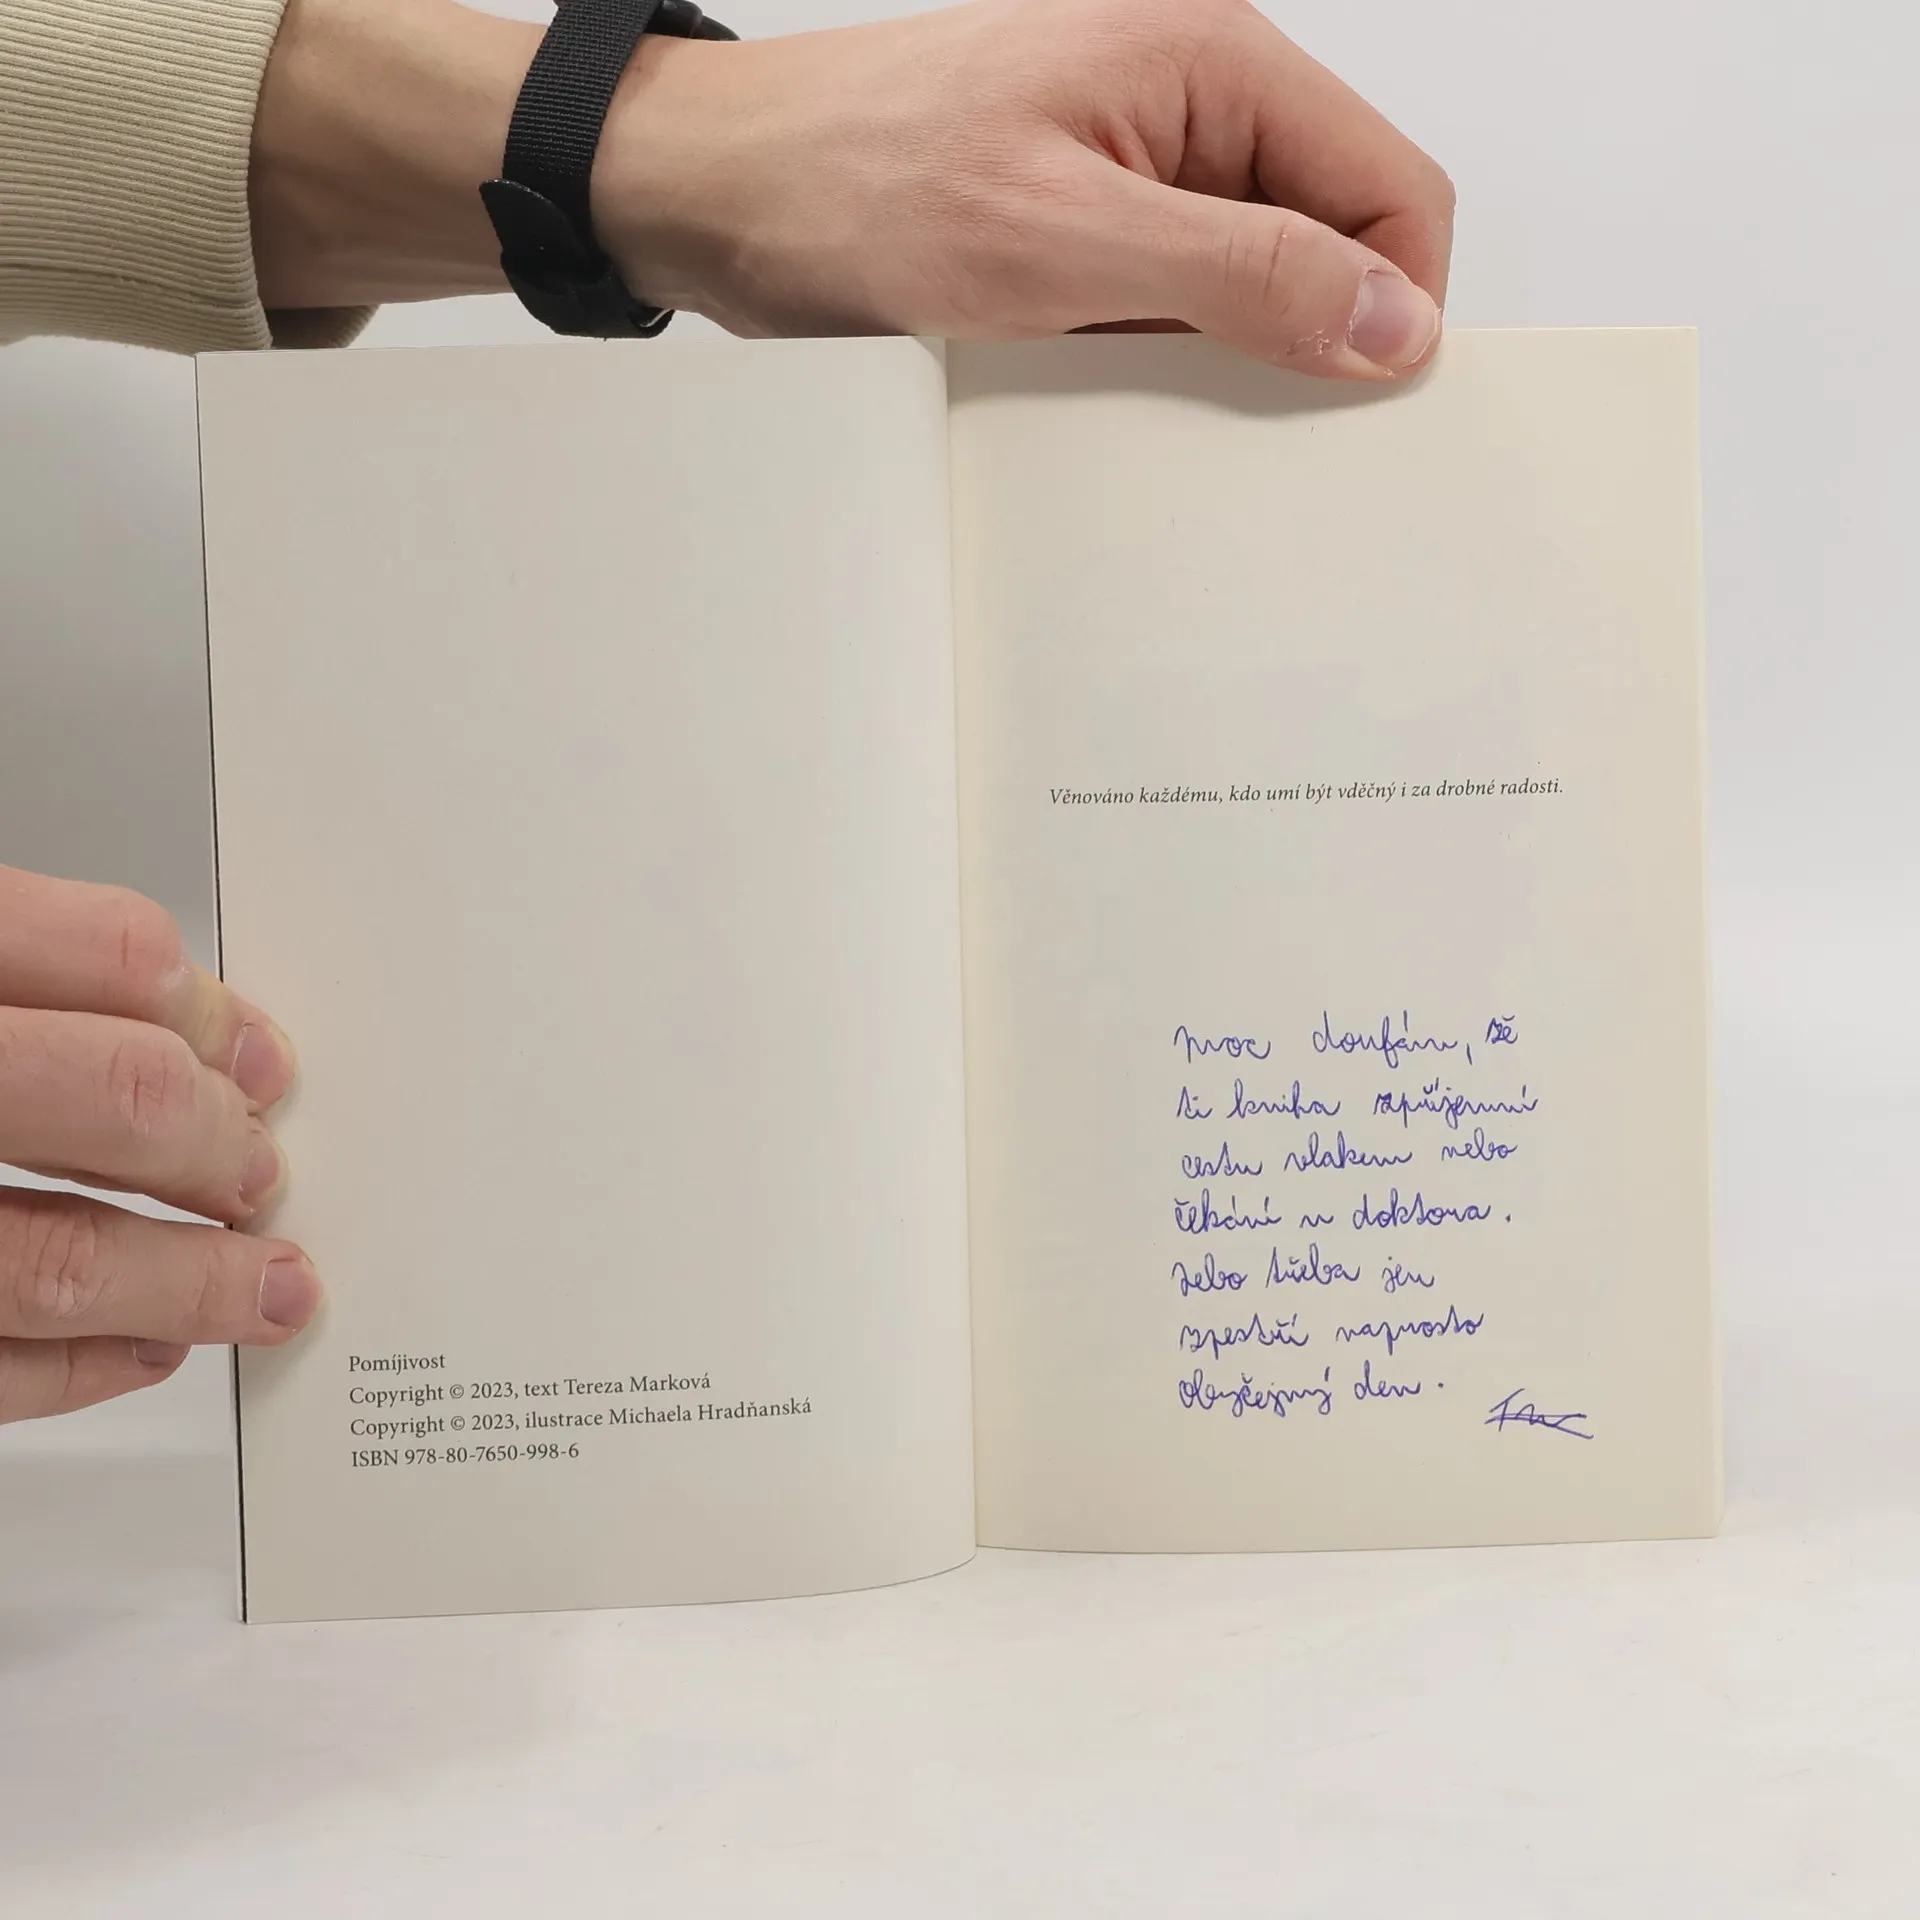 Pomíjivost
Copyright © 2023, text Tereza Marková
Copyright © 2023, ilustrace Michaela Hradňanská
ISBN 978-80-7650-998-6
Věnováno každému, kdo umí být vděčný i za drobné radosti.
moc doufám, že
ti kniha zpříjemní
cestu vlakem nebo
čekání u doktora.
Nebo třeba jen
zpestří naprosto
obyčejný den.